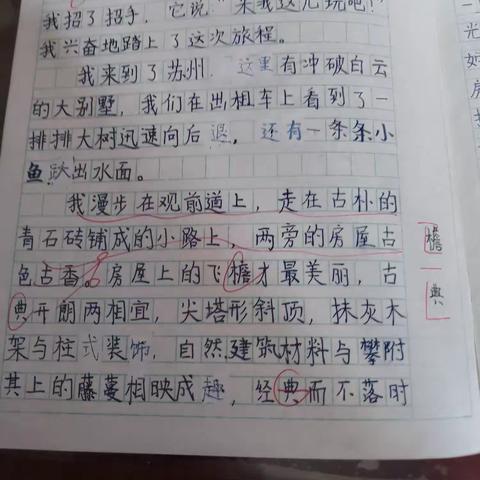 我招了招手，它说"来我这儿玩吧！"
我兴奋地踏上了这次旅程。
我来到了苏州，这里有冲破白云
的大别墅，我们在出租车上看到了一
排排大树迅速向后退，还有一条条小
鱼跃出水面。
我漫步在观前道上，走在古朴的
青石砖铺成的小路上，两旁的房屋古
色古香。房屋上的飞檐才最美丽，古
典开朗两相宜，尖塔形斜顶，抹灰木
架与柱式装饰，自然建筑材料与攀附
其上的藤蔓相映成趣，经典而不落时
檐
典